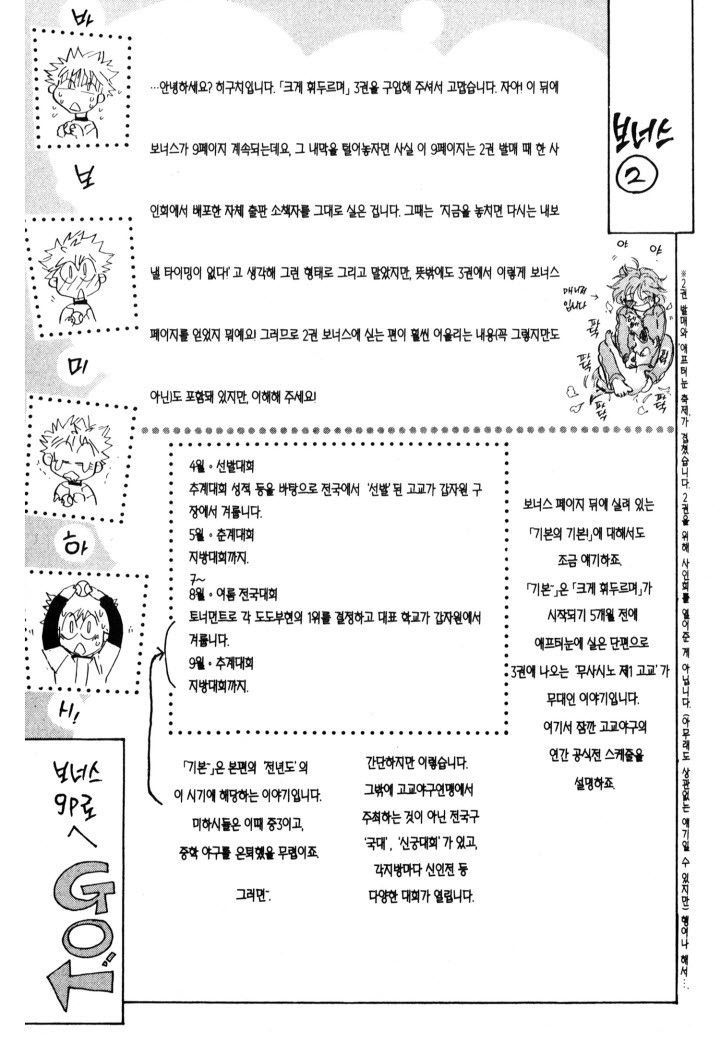 보너스
②
…안녕하세요? 히구치입니다. 「크게 휘두르며」 3권을 구입해 주셔서 고맙습니다. 자아! 이 뒤에
보너스가 9페이지 계속되는데요, 그 내막을 털어놓자면 사실 이 9페이지는 2권 발매 때 한 사
인회에서 배포한 자체 출판 소책자를 그대로 실은 겁니다. 그때는 '지금을 놓치면 다시는 내보
낼 타이밍이 없다!' 고 생각해 그런 형태로 그리고 말았지만, 뜻밖에도 3권에서 이렇게 보너스
페이지를 얻었지 뭐예요! 그러므로 2권 보너스에 싣는 편이 훨씬 어울리는 내용(꼭 그렇지만도
아닌)도 포함돼 있지만, 이해해 주세요!
야
야
매니저
입니다
파닥
파닥
파닥
파닥
※2권 발매와 '애프터눈 축제'가 겹쳤습니다. 2권을 위해 사인회를 열어준 게 아닙니다. (아무래도 상관없는 얘기일 수 있지만) 행여나 해서….
보너스 페이지 뒤에 실려 있는
「기본의 기본!」에 대해서도
조금 얘기하죠.
「기본~」은 「크게 휘두르며」가
시작되기 5개월 전에
애프터눈에 실은 단편으로
3권에 나오는 '무사시노 제1 고교' 가
무대인 이야기입니다.
여기서 잠깐 고교야구의
연간 공식전 스케줄을
설명하죠.
4월 • 선발대회
추계대회 성적 등을 바탕으로 전국에서 '선발' 된 고교가 갑자원 구
장에서 겨룹니다.
5월 • 춘계대회
지방대회까지.
7~
8월 • 여름 전국대회
토너먼트로 각 도도부현의 1위를 결정하고 대표 학교가 갑자원에서
겨룹니다.
9월 • 추계대회
지방대회까지.
간단하지만 이렇습니다.
그밖에 고교야구연맹에서
주최하는 것이 아닌 전국구
'국대', '신궁대회' 가 있고,
각지방마다 신인전 등
다양한 대회가 열립니다.
「기본~」은 본편의 '전년도' 의
이 시기에 해당하는 이야기입니다.
미하시들은 이때 중3이고,
중학 야구를 은퇴했을 무렵이죠.
그러면~.
미
하
보너스
9P로
GO!